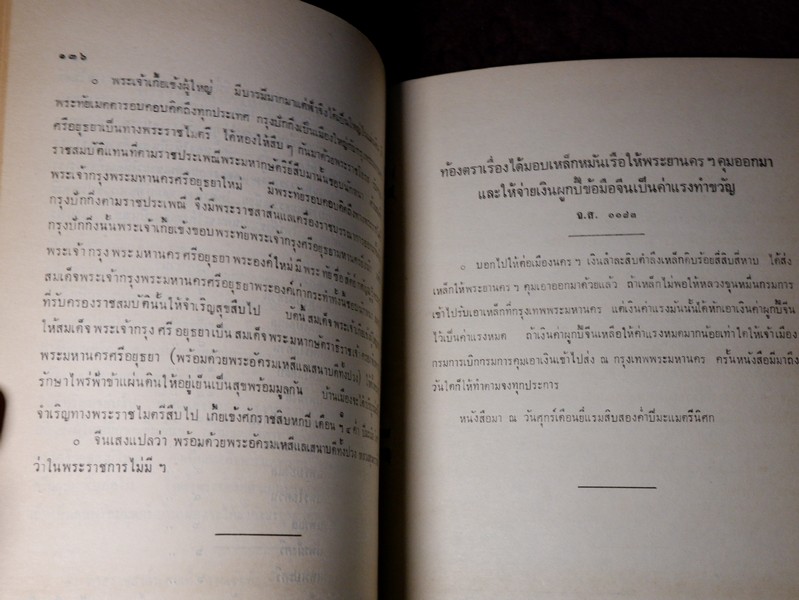 ๑๓๖
๐ พระเจ้าเกี้ยเข้งผู้ใหญ่ มีบารมีมากมาแต่
พระทัยเมตตารอบคอบคิดถึงทุกประเทศ กรุงปักกิ่งเป็นเมืองใหญ่
ศรีอยุธยาเป็นทางพระราชไมตรี ได้หองให้สืบ ๆ กันมาด้วยพระราชไมตรี
ราชสมบัติแทนที่ตามราชประเพณีพระมหากษัตริย์สืบมานั้นชอบ
พระเจ้ากรุงพระมหานครศรีอยุธยาใหม่ มีพระทัยรอบคอบคิดถึง
กรุงปักกิ่งตามราชประเพณี จึงมีพระราชสาส์นแลเครื่องราชบรรณาการ
กรุงปักกิ่งนั้นพระเจ้าเกี้ยเข้งขอบพระทัยพระเจ้ากรุงศรีอยุธยา
พระเจ้ากรุงพระมหานครศรีอยุธยาพระองค์ใหม่มีพระทัยซื่อสัตย์
สมเด็จพระเจ้ากรุงพระมหานครศรีอยุธยาพระองค์เก่ากระทำทั้งนี้ชอบ
ที่รับครองราชสมบัตินั้นให้จำเริญสุขสืบไป บัดนี้สมเด็จพระเจ้า
ให้สมเด็จพระเจ้ากรุงศรีอยุธยาเป็นสมเด็จพระมหากษัตราธิราชเจ้า
พระมหานครศรีอยุธยา (พร้อมด้วยพระอัครมเหสีแลเสนาบดีทั้งปวง)
รักษาไพร่ฟ้าข้าแผ่นดินให้อยู่เย็นเป็นสุขพร้อมมูลกัน บ้านเมืองจะได้
จำเริญทางพระราชไมตรีสืบไป เกี้ยเข้งศักราชสิบหกปี เดือน ๆ ๔ ค่ำ
๐ จีนเสงแปลว่า พร้อมด้วยพระอัครมเหสีแลเสนาบดีทั้งปวง
ว่าในพระราชการไม่มี ฯ
ท้องตราเรื่องได้มอบเหล็กหมันเรือให้พระยานคร ฯ คุมออกมา
และให้จ่ายเงินผูกปี้ข้อมือจีนเป็นค่าแรงทำขวัญ
จ.ศ. ๑๑๗๓
๐ บอกไปให้ต่อเมืองนคร ฯ เงินลำละสิบตำลึงเหล็กดิบร้อยสี่สิบสี่หาบ ได้ส่ง
เหล็กให้พระยานคร ฯ คุมเอาออกมาด้วยแล้ว ถ้าเหล็กไม่พอให้หลวงขุนหมื่นกรมการ
เข้าไปรับเอาเหล็กที่กรุงเทพพระมหานคร แต่เงินค่าแรงมันนั้นได้หักเอาเงินค่าผูกปี้จีน
ไว้เป็นค่าแรงหมด ถ้าเงินค่าผูกปี้จีนเหลือให้ค่าแรงหมดมากน้อยเท่าใดให้เจ้าเมือง
กรมการเบิกกรมการคุมเอาเงินเข้าไปส่ง ณ กรุงเทพพระมหานคร ครั้นหนังสือมีมาถึง
วันใดก็ให้ทำตามจงทุกประการ
หนังสือมา ณ วันศุกร์เดือนยี่แรมสิบสองค่ำปีมะแมตรีนิศก